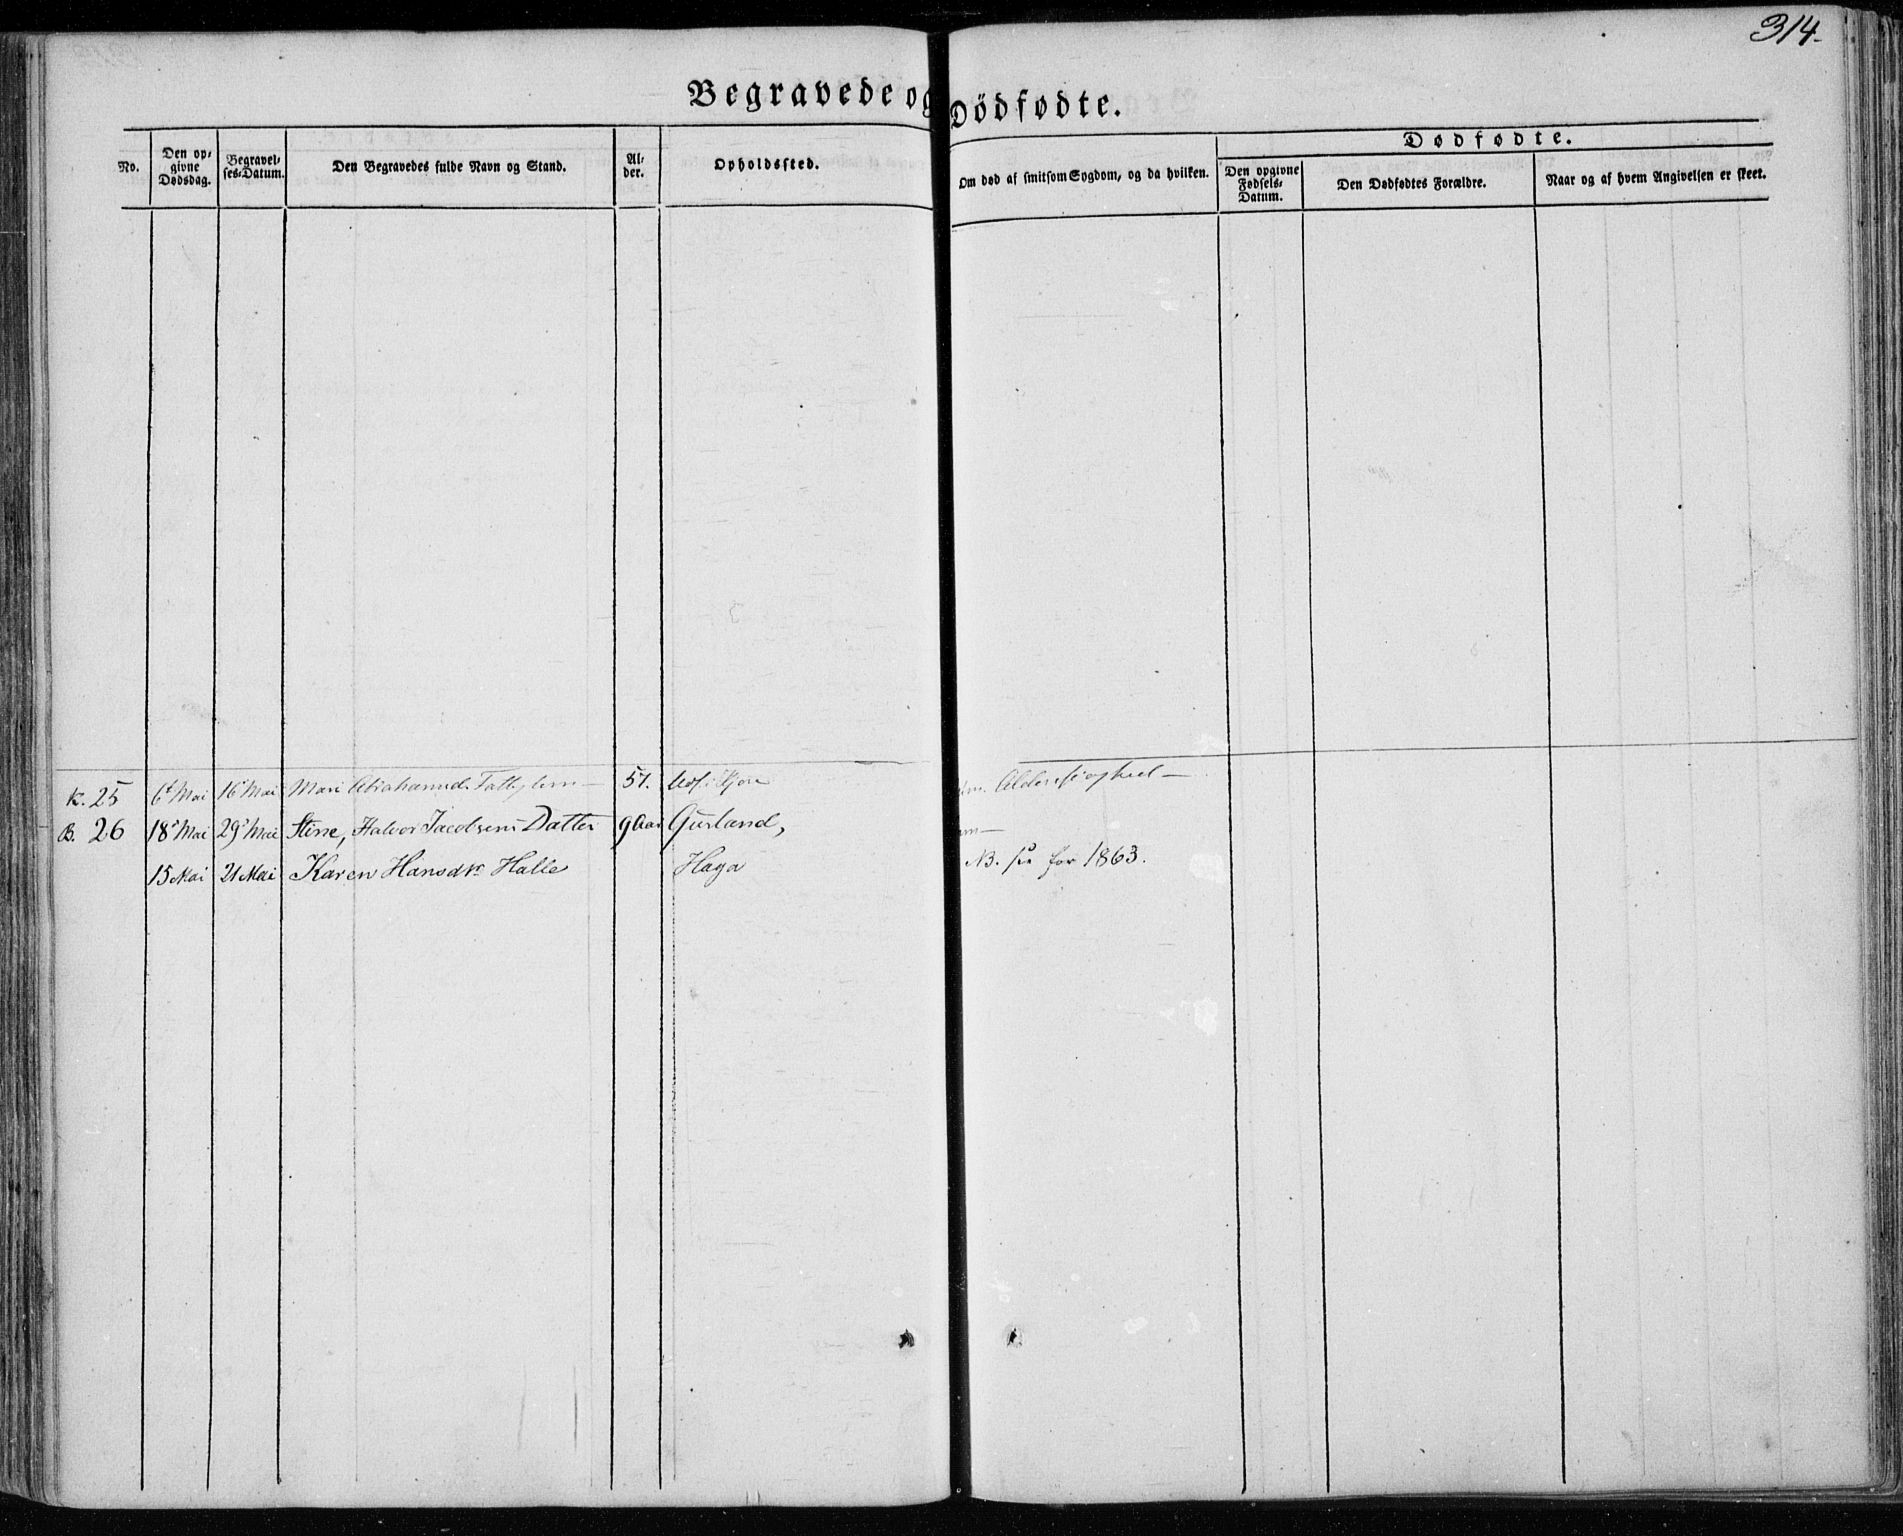 314.
Begravede og Dödfødte.
Dødfødte.
No.
Den opgivne Dødsdag.
Begravelses-Datum.
Den Begravedes fulde Navn og Stand.
Alder.
Opholdssted.
Om død af smitsom Sygdom, og da hvilken.
Den opgivne Fødsels-Datum.
Den Dødfødtes Forældre.
Naar og af hvem Angivelsen er skeet.
K. 25 6t Mai 16 Mai Mari 57.
B. 26 18 Mai 29 Mai Stine, Halvor Jacobsens Datter 9 Aar Gusland,
15 Mai 21 Mai Karen Hansdr Halle Haga NB. se for 1863.